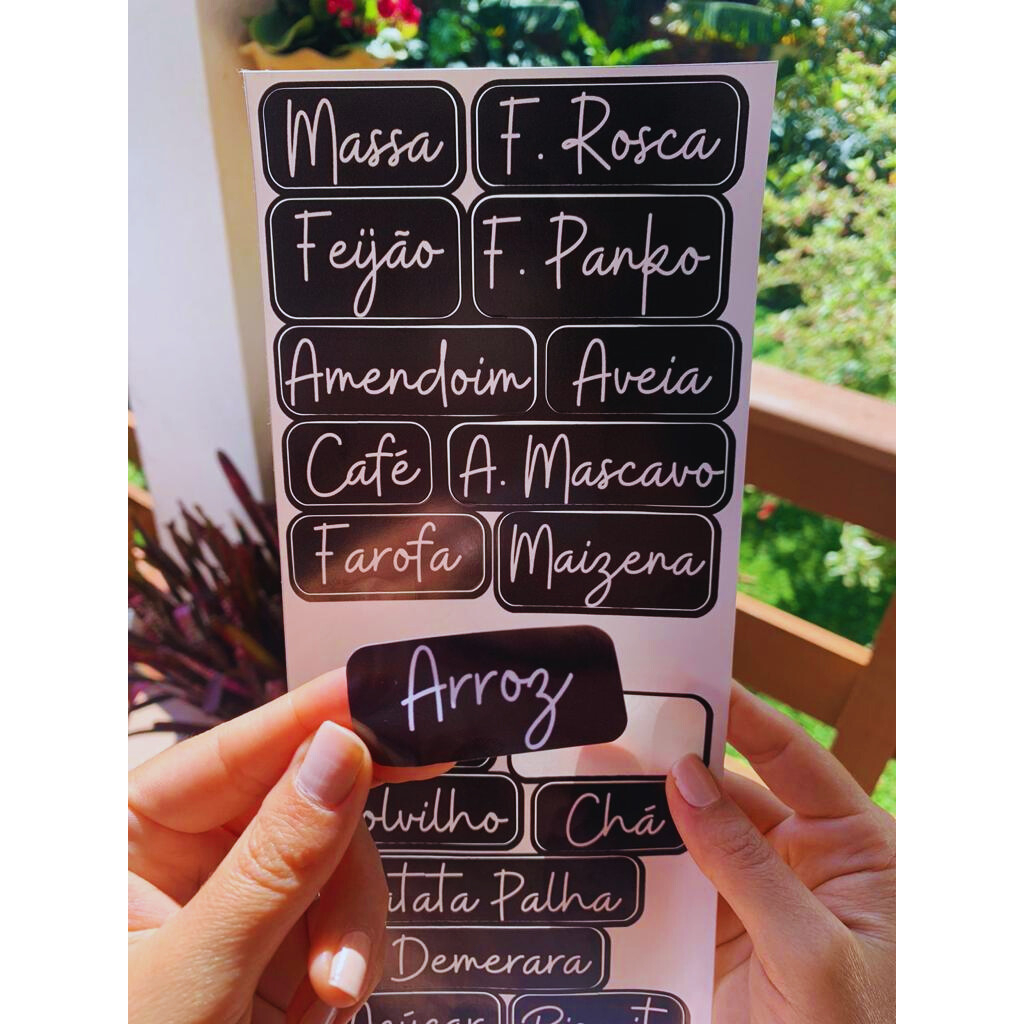 Massa F. Rosca
Feijão F. Panko
Amendoim Aveia
Café A. Mascavo
Farofa Maizena
Arroz
olvilho Chá
atata Palha
Demerara
Açúcar